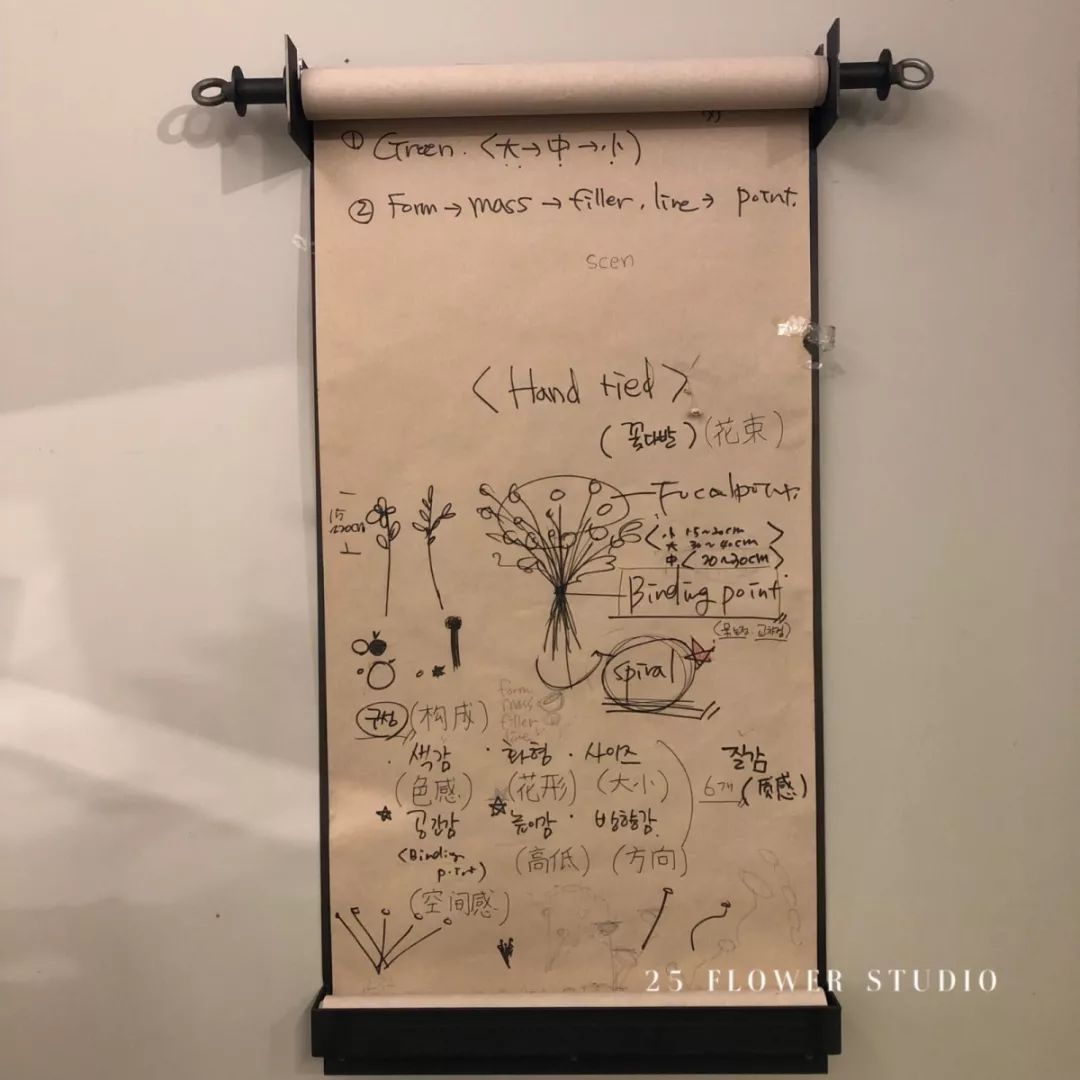 ① Green. <大→中→小)
② Form → mass → filler, line → point.
scen
<Hand tied>
(꽃다발) (花束)
Focalpoint.
15
~20cm
小 15~20cm
大 30~40cm
中 20~30cm
Binding point
spiral
form
mass
filler
line
구성 (构成)
· 색감 · 화형 · 사이즈
질감
(色感) (花形) (大小)
6개 (质感)
공간감 높이감 · 방향감
<Binding
point)
(高低) (方向)
(空间感)
25 FLOWER STUDIO